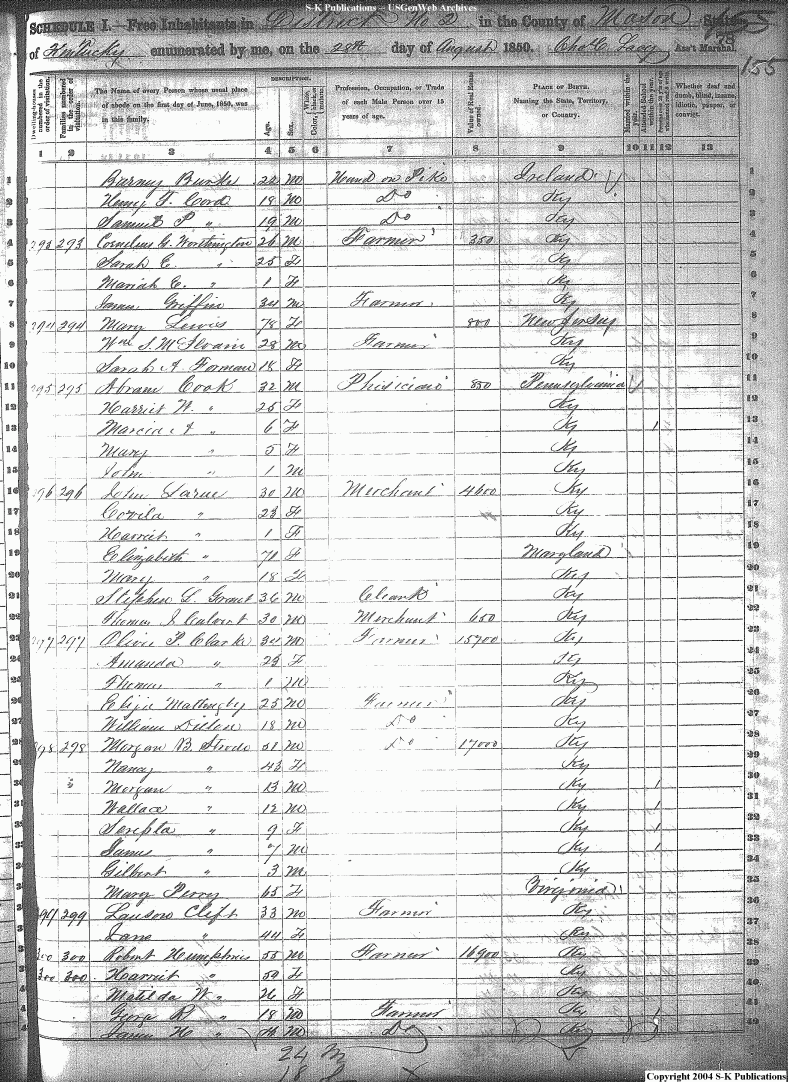 S-K Publications -- USGenWeb Archives
SCHEDULE I.—Free Inhabitants in District No 2 in the County of Mason State
of Kentucky enumerated by me, on the 28th day of August 1850. Chas C. Lacy Ass't Marshal.
78
155
DESCRIPTION.
Dwelling-houses numbered in the order of visitation.
Families numbered in the order of visitation.
The Name of every Person whose usual place of abode on the first day of June, 1850, was in this family.
Age.
Sex.
White, Color, black, or mulatto.
Profession, Occupation, or Trade of each Male Person over 15 years of age.
Value of Real Estate owned.
PLACE OF BIRTH. Naming the State, Territory, or Country.
Married within the year.
Attended School within the year.
Whether deaf and dumb, blind, insane, idiotic, pauper, or convict.
1 2 3 4 5 6 7 8 9 10 11 12 13
1 Barney Burke 22 M Hand on Pike Ireland 1
2 Henry F. Cord 18 M Do Ky 2
3 Samuel P. " 19 M Do Ky 3
4 293 293 Cornelius C. Worthington 26 M Farmer 350 Ky 4
5 Sarah E. " 25 F Ky 5
6 Mariah C. " 1 F Ky 6
7 James Griffin 34 M Farmer Ky 7
8 294 294 Mary Lewis 78 F 800 New Jersey 8
9 Wm S. McIlvain 28 M Farmer Ky 9
10 Sarah A Forman 18 F Ky 10
11 295 295 Abram Cook 32 M Phisician 850 Pennsylvania 11
12 Harriet W. " 25 F Ky 12
13 Marcia A " 6 F Ky 1 13
14 Mary " 5 F Ky 14
15 John " 1 M Ky 15
16 296 296 John Larue 30 M Merchant 4600 Ky 16
17 " 23 F Ky 17
18 Harriet " 1 F Ky 18
19 Elizabeth " 71 F Maryland 19
20 Mary " 18 F Ky 20
21 Stephen L. Grant 36 M Clerk Ky 21
22 Thomas J. Calvert 30 M Merchant 650 Ky 22
23 297 297 Oliver P. Clark 34 M Farmer 15700 Ky 23
24 Amanda " 23 F Ky 24
25 Thomas " 1 M Ky 25
26 Elijie Mattingly 25 M Farmer Ky 26
27 William Dillon 18 M Do Ky 27
28 298 298 Morgan B. Strode 51 M Do 17000 Ky 28
29 Nancy " 43 F Ky 29
30 Morgan " 13 M Ky 1 30
31 Wallace " 12 M Ky 1 31
32 Serepta " 9 F Ky 1 32
33 James " 7 M Ky 1 33
34 Gilbert " 3 M Ky 34
35 Mary Perry 65 F Virginia 35
36 299 299 Lawson Clift 33 M Farmer Ky 36
37 Jane " 44 F Ky 37
38 300 300 Robert Humphries 55 M Farmer 16900 Ky 38
39 300 300 Hearriet " 59 F Ky 39
40 Matilda W. " 26 F Ky 40
41 George R " 18 M Farmer Ky 1
42 James H " M Do Ky 42
24 M
18 F
Copyright 2004 S-K Publications